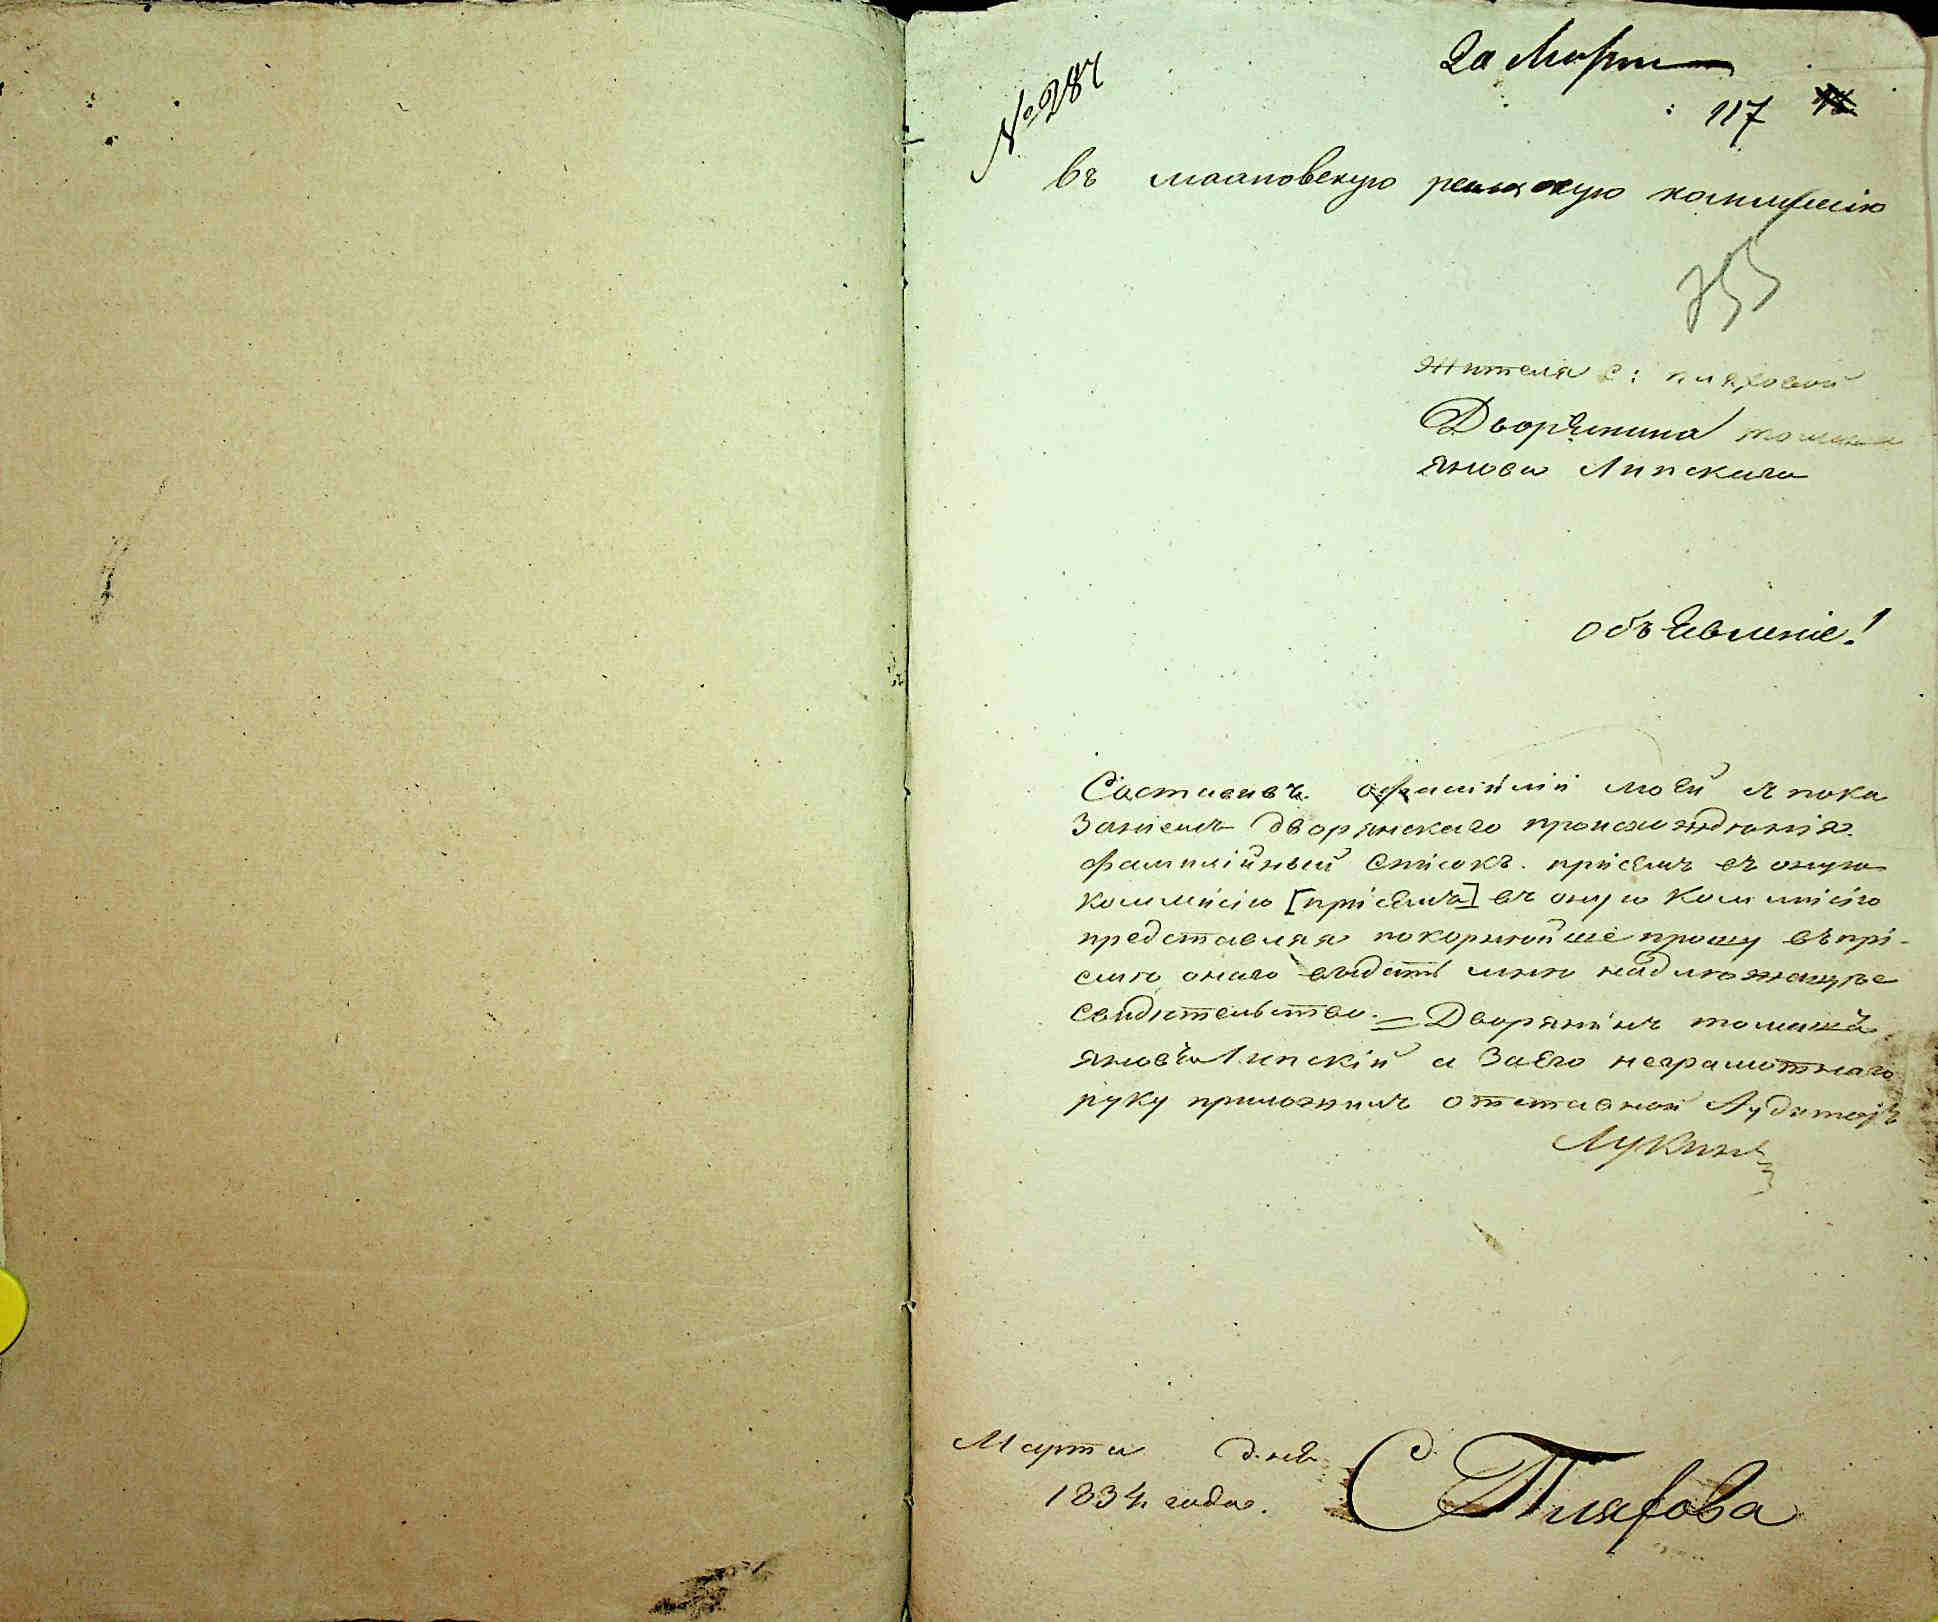 № 284
2а Марта
117
въ малиновскую ревизскую коммисію
Жителя С: пляховой
Дворянина томаша
янова Липскаго
объЯвленіе!
Составивъ о фамиліи моЕй с пока
Заніемъ дворянскаго происхождѣнія
фамилійный списокъ. прісемъ въ оную
коммисію [прісемъ] въ оную коммисію
представляя покорнѣйше прошу въ прі-
емѣ онаго выдать мнѣ надлѣжащее
свидѣтельство. = Дворянинъ томашъ
яновъ Липскій а За Его неграмотнаго
руку приложилъ отставной Аудиторъ
Лукинъ
Марта дня
1834 года.
С Пляхова